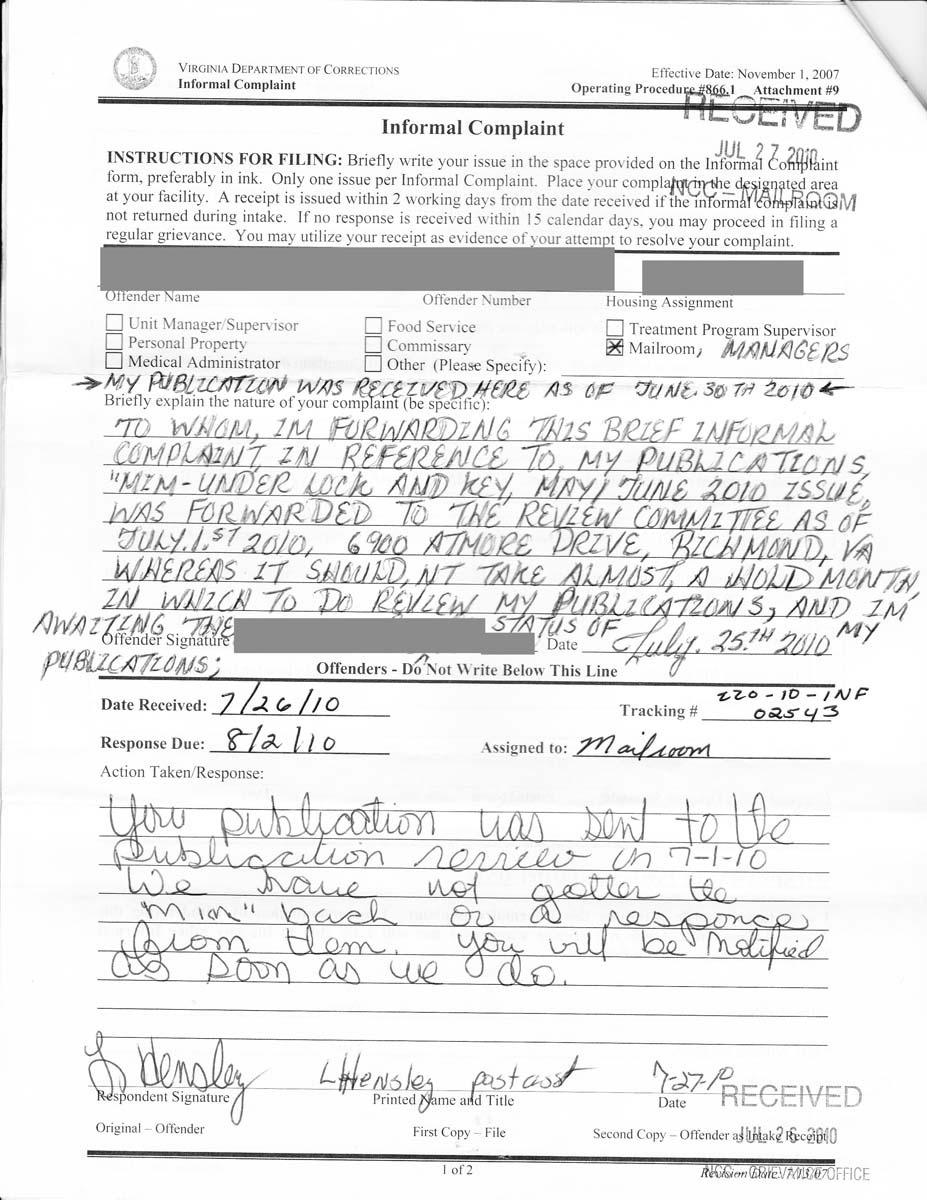 VIRGINIA DEPARTMENT OF CORRECTIONS
Informal Complaint
Effective Date: November 1, 2007
Operating Procedure #866.1 Attachment #9
RECEIVED
JUL 27 2010
NCC - MAILROOM
Informal Complaint
INSTRUCTIONS FOR FILING: Briefly write your issue in the space provided on the Informal Complaint
form, preferably in ink. Only one issue per Informal Complaint. Place your complaint in the designated area
at your facility. A receipt is issued within 2 working days from the date received if the informal complaint is
not returned during intake. If no response is received within 15 calendar days, you may proceed in filing a
regular grievance. You may utilize your receipt as evidence of your attempt to resolve your complaint.
Offender Name Offender Number Housing Assignment
Unit Manager/Supervisor Food Service Treatment Program Supervisor
Personal Property Commissary Mailroom, MANAGERS
Medical Administrator Other (Please Specify):
→ MY PUBLICATION WAS RECEIVED HERE AS OF JUNE.30TH 2010 ←
Briefly explain the nature of your complaint (be specific):
TO WHOM, IM FORWARDING THIS BRIEF INFORMAL
COMPLAINT, IN REFERENCE TO, MY PUBLICATIONS,
"MIM-UNDER LOCK AND KEY, MAY/JUNE 2010 ISSUE,
WAS FORWARDED TO THE REVIEW COMMITTEE AS OF
JULY.1.ST 2010, 6900 ATMORE DRIVE, RICHMOND, VA
WHEREAS IT SHOULD,NT TAKE ALMOST, A HOLD MONTH,
IN WHICH TO DO REVIEW MY PUBLICATIONS; AND IM
AWAITING THE STATUS OF MY
PUBLICATIONS;
Offender Signature Date July. 25.TH 2010
Offenders - Do Not Write Below This Line
Date Received: 7/26/10
Tracking # 220-10-INF
02543
Response Due: 8/2/10 Assigned to: Mailroom
Action Taken/Response:
Your publication was sent to the
publication review on 7-1-10
We have not gotten the
"mim" back or a responce
from them. You will be notified
as soon as we do.
L Hensley LHensley post asst 7-27-10
Respondent Signature Printed Name and Title Date
RECEIVED
JUL 26 2010
NCC - GRIEVANCE OFFICE
Original – Offender First Copy – File Second Copy – Offender as Intake Receipt
1 of 2 Revision Date: 7/13/07